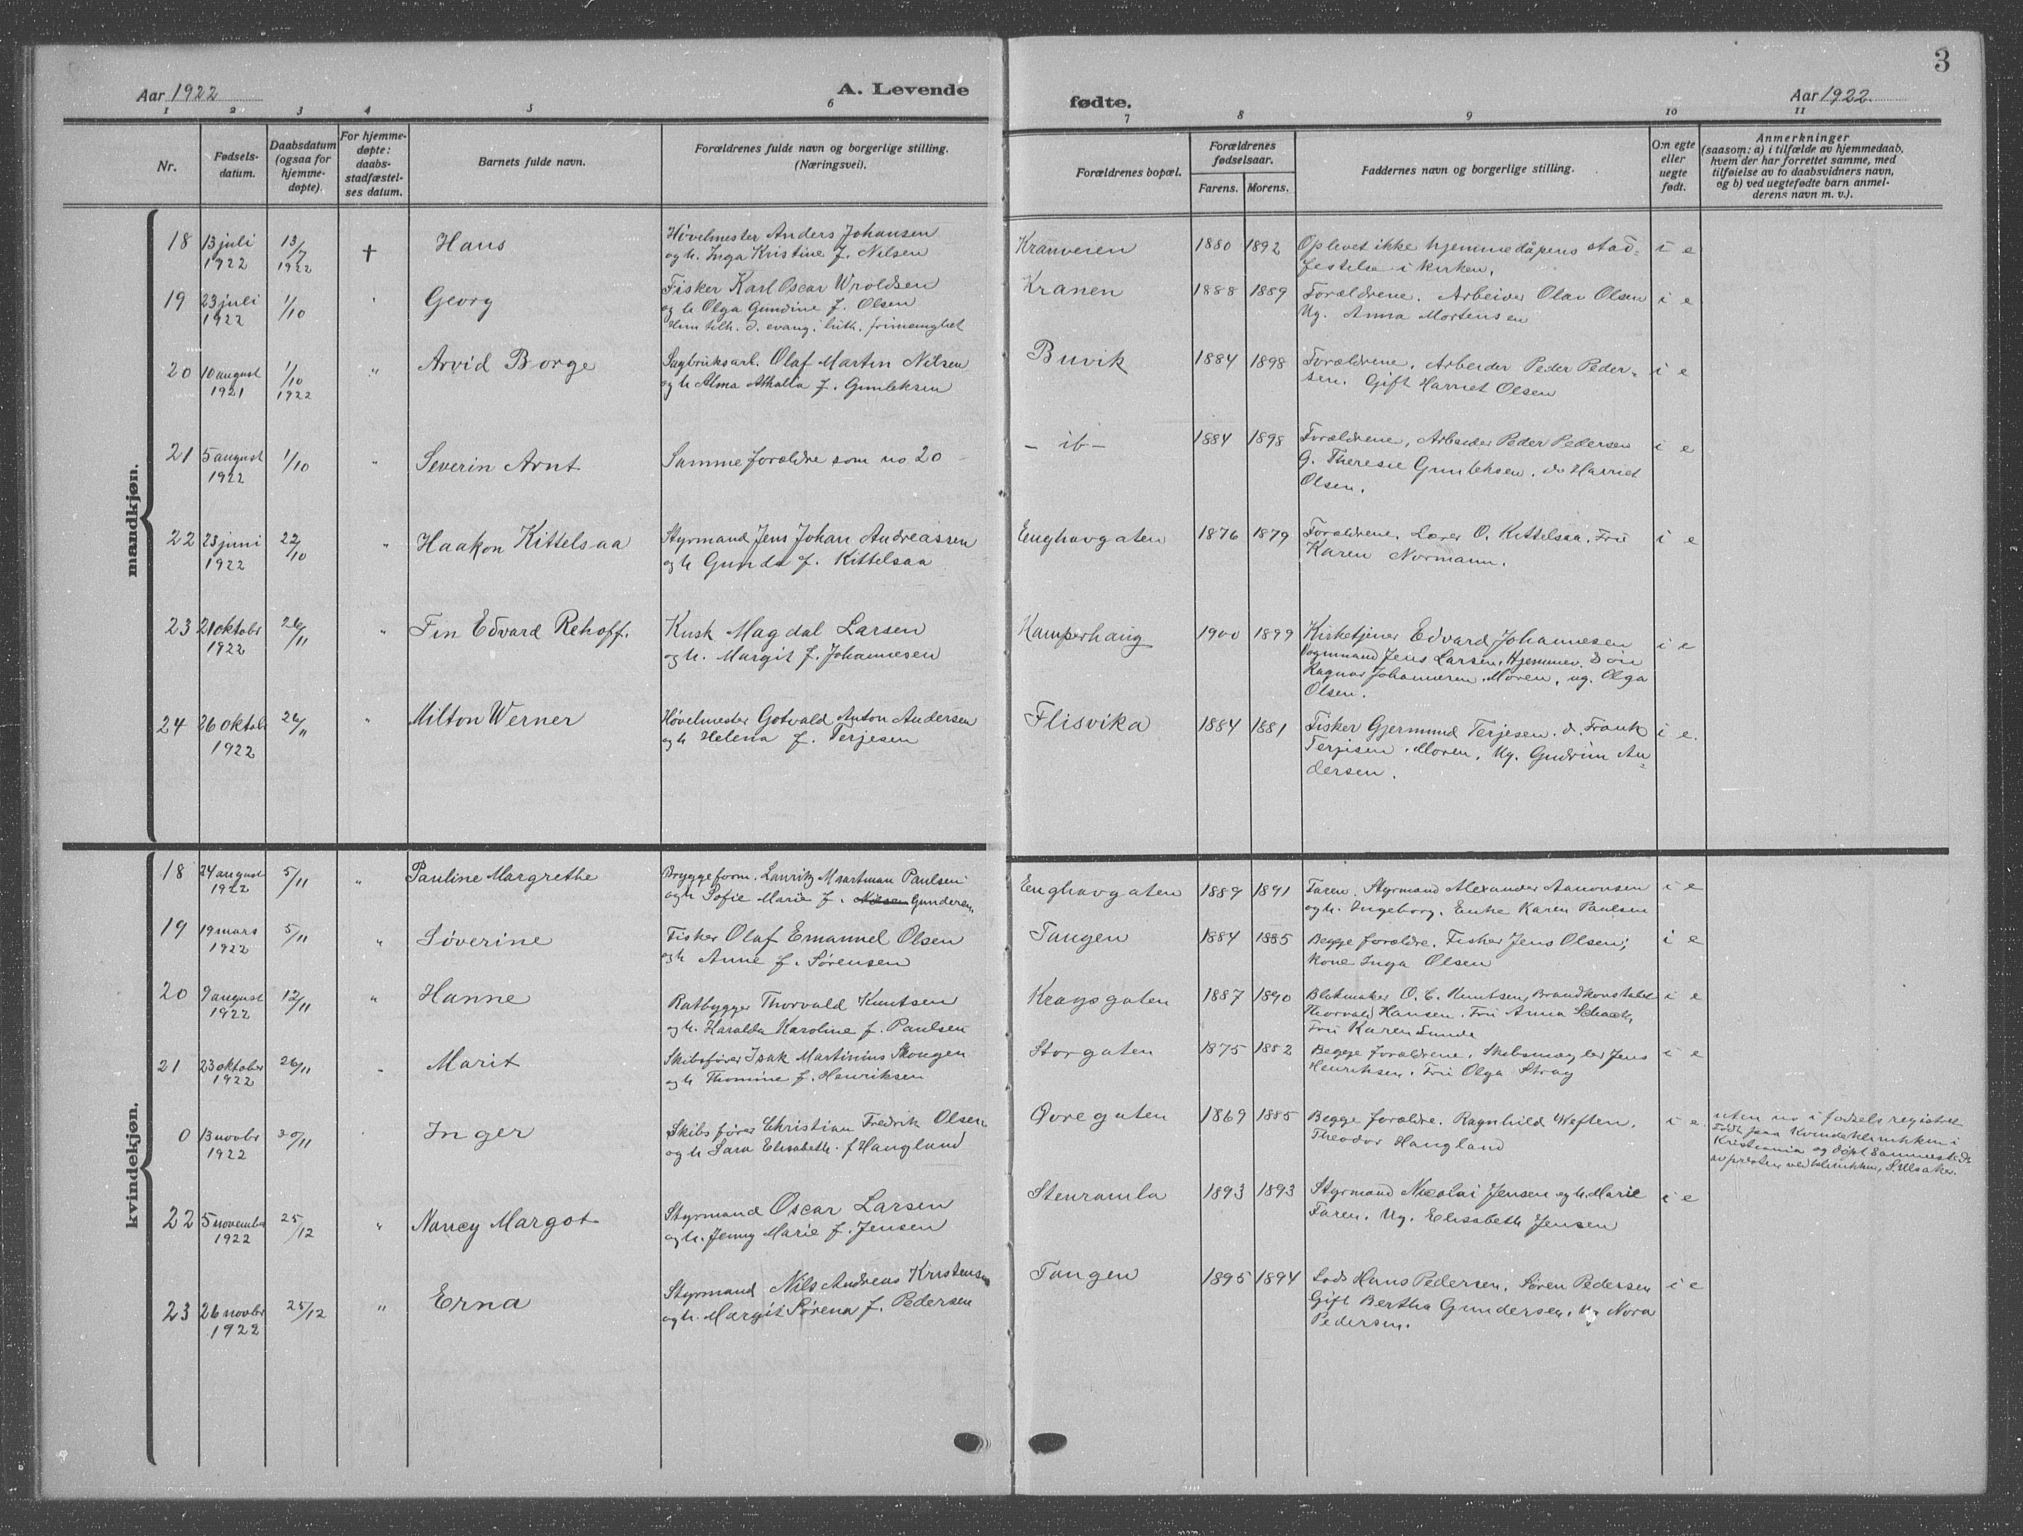 3
Aar 1922 A. Levende fødte. Aar 1922
1 2 3 4 5 6 7 8 9 10 11
Nr.
Fødsels-
datum.
Daabsdatum
(ogsaa for
hjemme-
døpte).
For hjemme-
døpte:
daabs-
stadfæstel-
ses datum.
Barnets fulde navn.
Forældrenes fulde navn og borgerlige stilling.
(Næringsvei).
Forældrenes bopæl.
Forældrenes
fødselsaar.
Farens. Morens.
Faddernes navn og borgerlige stilling.
O:m egte
eller
uegte
født.
Anmerkninger
(saasom: a) i tilfælde av hjemmedaab,
hvem der har forrettet samme, med
tilføielse av to daabsvidners navn,
og b) ved uegtefødte barn anmel-
derens navn m. v.).
mandkjøn.
18 13 juli 1922 13/7 1922 † Hans
Høvelmester Anders Johansen
og h. Inga Kristine f. Nilsen
Kranveien 1880 1892
Oplevet ikke hjemmedåpens stad-
festelse i kirken.
i e
19 23 juli 1922 1/10 " Georg
Fisker Karl Oscar Wroldsen
og h Olga Gundine f. Olsen
Hun tilh. d. evang. luth. frimenighet
Kranen 1888 1889
Forældrene. Arbeider Olav Olsen
Ug. Anna Mortensen
i e
20 10 august 1921 1/10 1922 " Arvid Borge
Sagbruksarb. Olaf Martin Nilsen
og h Alma Athalla f. Gunleksen
Buvik 1884 1898
Forældrene. Arbeider Peder Peder-
sen. Gift Harriet Olsen
i e
21 5 august 1922 1/10 " Severin Arnt
Samme forældre som no 20
- ib - 1884 1898
Forældrene, Arbeider Peder Pedersen
G. Theresie Gunleksen. do Harriet
Olsen.
i e
22 23 juni 1922 22/10 " Haakon Kittelsaa
Styrmand Jens Johan Andreassen
og h Gunda f. Kittelsaa
Enghavgaten 1876 1879
Forældrene. Lærer O. Kittelsaa. Fru
Karen Normann.
i e
23 21 oktobr 1922 26/11 " Fin Edvard Rehoff.
Kusk Magdal Larsen
og h. Margit f. Johannesen
Hamperhaug 1900 1899
Kirketjener Edvard Johannesen
Vognmand Jens Larsen, Hjemmev. Søn
Ragnar Johannesen. Moren, ug. Olga
Olsen.
i e
24 26 oktob 1922 26/11 " Milton Werner
Høvelmester Gotvald Anton Andersen
og h Helena f. Terjesen
Flisvika 1884 1881
Fisker Gjermund Terjesen. d. Frank
Terjesen. Moren, Ug. Gudrun An-
dersen.
i e.
kvindekjøn.
18 24 august 1922 5/11 " Pauline Margrethe
Bryggeform. Lauritz Martman Paulsen
og h Sofie Marie f. Nilsen Gundersen
Enghavgaten 1889 1891
Faren. Styrmand Alexander Aanonsen
og h. Ingeborg. Enke Karen Paulsen
i e
19 19 mars 1922 5/11 " Søverine
Fisker Olaf Emanuel Olsen
og h Anne f. Sørensen
Tangen 1884 1885
Begge forældre. Fisker Jens Olsen;
kone Inga Olsen
i e
20 9 august 1922 12/11 " Hanne
Ratbygger Thorvald Knutsen
og h. Haralda Karoline f. Paulsen
Kragsgaten 1887 1890
Blokmaker O. C. Knutsen, Brandkonstabel
Thorvald Hansen. Fru Anna Schack,
Fru Karen Sunde
i e
21 23 oktober 1922 26/11 - Marit
Skibsfører Isak Martinius Skongen
og h Thomine f. Henriksen
Storgaten 1875 1882
Begge forældrene. Skibsmægler Jens
Henriksen. Fru Olga Stray
i e
0 13 novbr 1922 30/11 Inger
Skibsfører Christian Fredrik Olsen
og h Sara Elisabeth f Haugland
Øvregaten 1869 1885
Begge forældre. Ragnhild Weften.
Theodor Haugland
i e.
uten no i fødselsregistret
Født paa Kvindeklinikken i
Kristiania og døpt sammesteds
av presten ved klinikken,
22 5 november 1922 25/12 " Nancy Margot
Styrmand Oscar Larsen
og h. Jenny Marie f. Jensen
Stenramla 1893 1893
Styrmand Nicolai Jensen og h. Marie
Faren. Ug. Elisabeth Jensen
i e
23 26 novbr 1922 25/12 " Erna
Styrmand Nils Andreas Kristensen
og h. Margit Sørena f. Pedersen
Tangen 1895 1894
Lods Hans Pedersen. Søren Pedersen
Gift Bertha Gundersen. Ug Nora
Pedersen.
i e